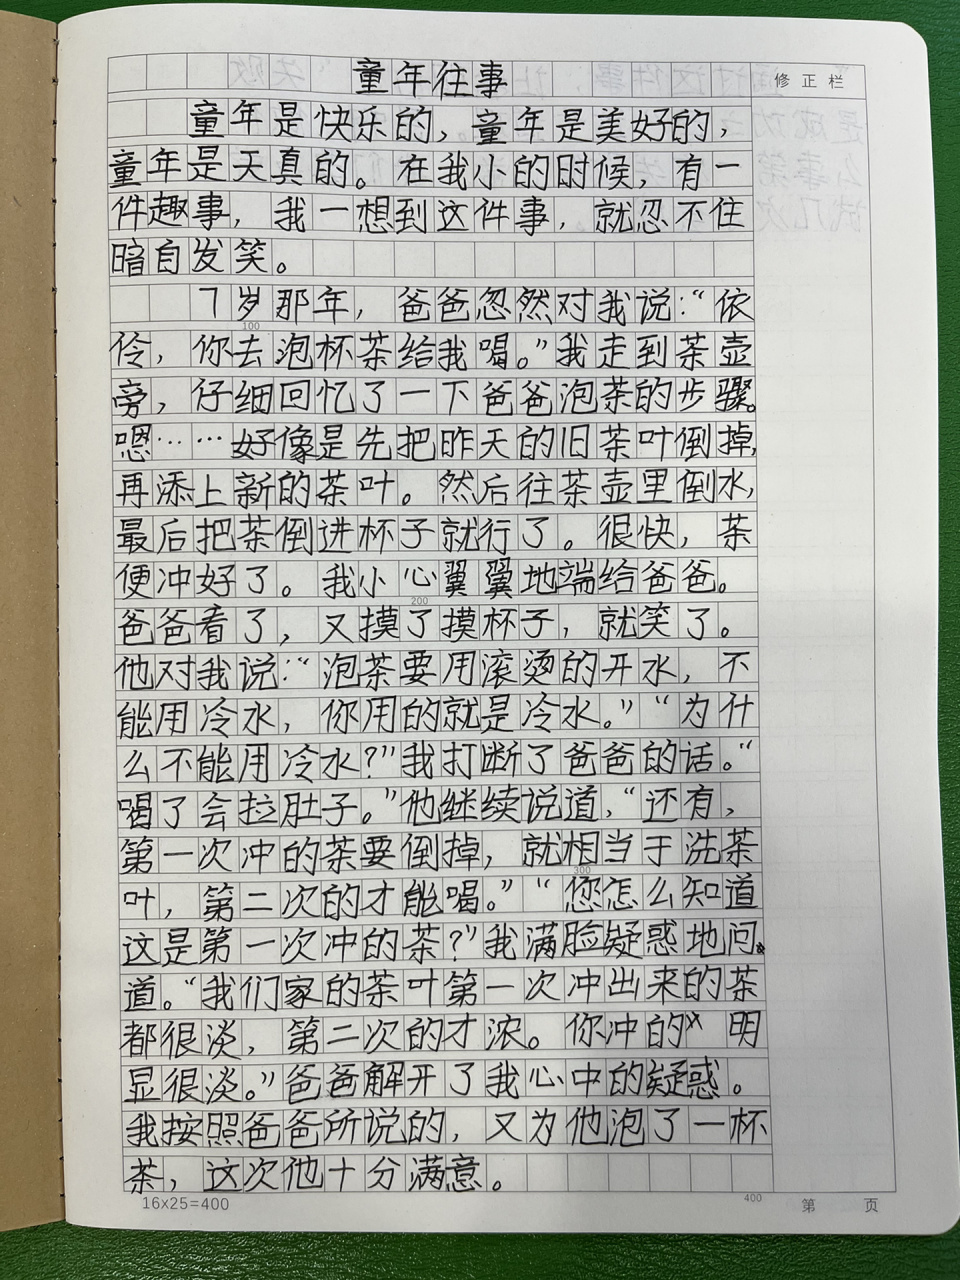 童年往事
修正栏
童年是快乐的，童年是美好的，
童年是天真的。在我小的时候，有一
件趣事，我一想到这件事，就忍不住
暗自发笑。
7岁那年，爸爸忽然对我说：“依
100
伶，你去泡杯茶给我喝。”我走到茶壶
旁，仔细回忆了一下爸爸泡茶的步骤。
嗯……好像是先把昨天的旧茶叶倒掉，
再添上新的茶叶。然后往茶壶里倒水，
最后把茶倒进杯子就行了。很快，茶
便冲好了。我小心翼翼地端给爸爸。
200
爸爸看了，又摸了摸杯子，就笑了。
他对我说：“泡茶要用滚烫的开水，不
能用冷水，你用的就是冷水。”“为什
么不能用冷水？”我打断了爸爸的话。“
喝了会拉肚子。”他继续说道，“还有，
第一次冲的茶要倒掉，就相当于洗茶
300
叶，第二次的才能喝。”“您怎么知道
这是第一次冲的茶？”我满脸疑惑地问
道。“我们家的茶叶第一次冲出来的茶
都很淡，第二次的才浓。你冲的明
显很淡。”爸爸解开了我心中的疑惑。
我按照爸爸所说的，又为他泡了一杯
茶，这次他十分满意。
16x25=400
400
第 页